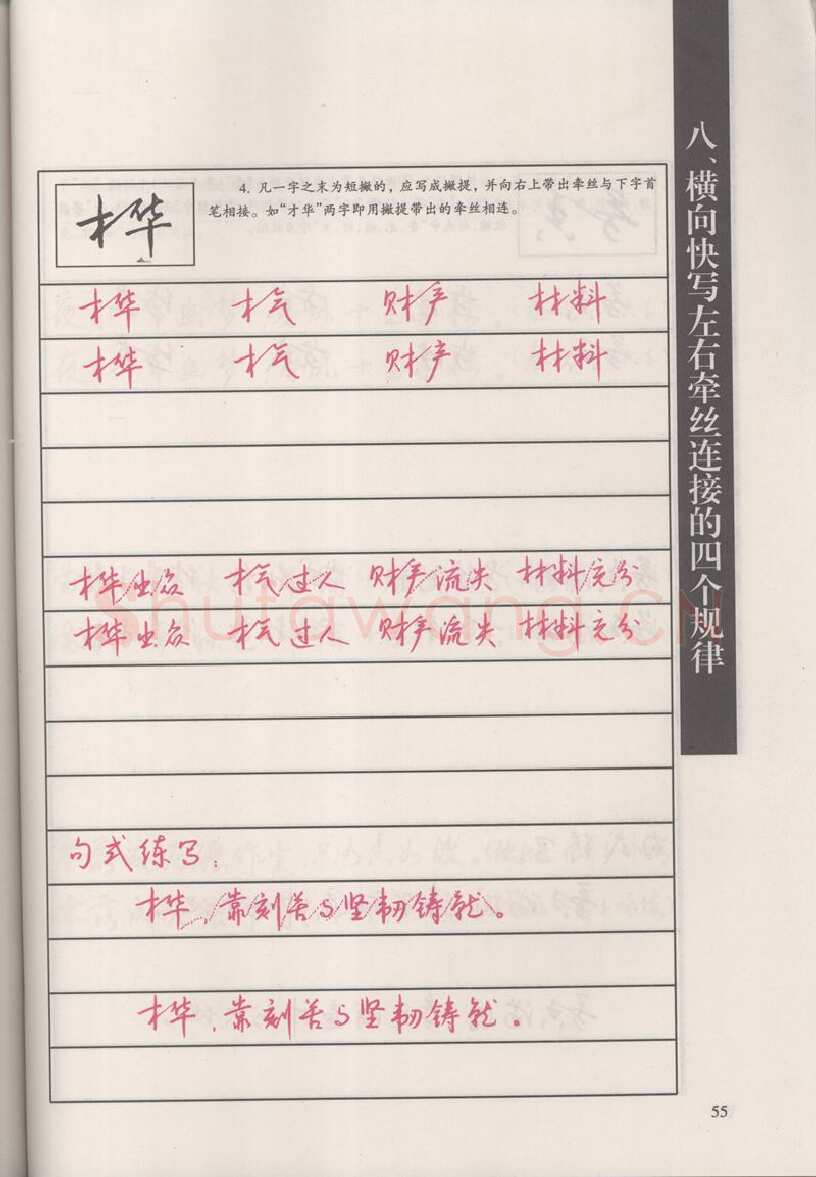 八、横向快写左右牵丝连接的四个规律
才华
4. 凡一字之末为短撇的，应写成撇提，并向右上带出牵丝与下字首
笔相接。如“才华”两字即用撇提带出的牵丝相连。
才华 才气 财产 材料
才华 才气 财产 材料
才华出众 才气过人 财产流失 材料充分
才华出众 才气过人 财产流失 材料充分
shufawang.CN
句式练写：
才华，靠刻苦与坚韧铸就。
才华，靠刻苦与坚韧铸就。
55